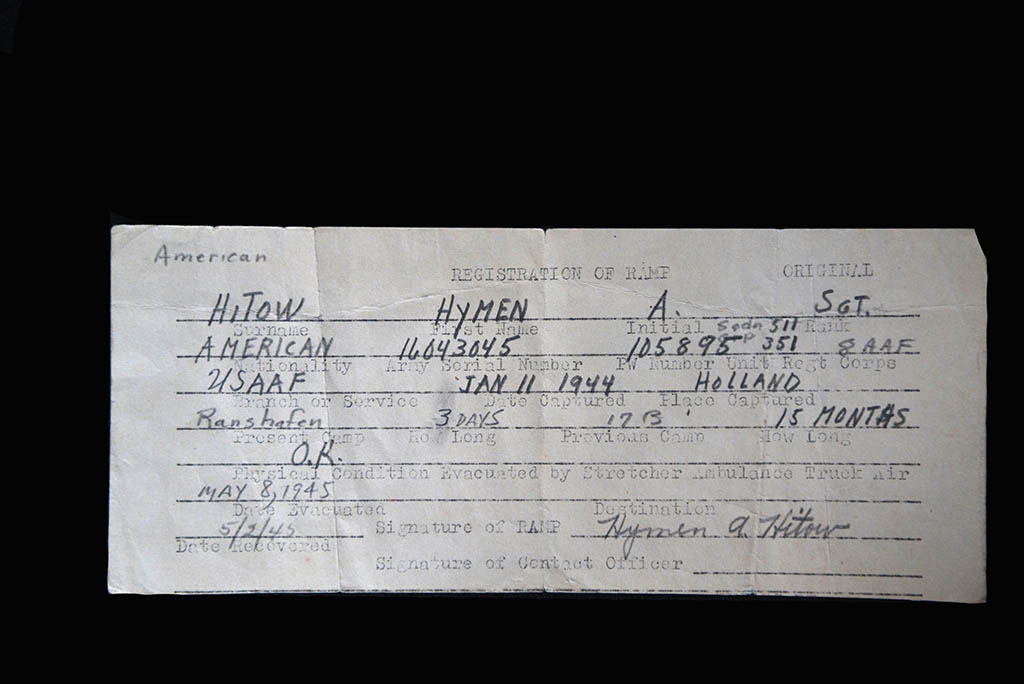 American
REGISTRATION OF RAMP ORIGINAL
HiTOW HYMEN A. SGT.
Surname First Name Initial Sqdn 511 Rank
AMERICAN 16043045 105895 P 351 8 AAF
Nationality Army Serial Number PW Number Unit Regt Corps
USAAF JAN 11 1944 HOLLAND
Branch or Service Date Captured Place Captured
Ranshofen 3 DAYS 17 B 15 MONTHS
Present Camp How Long Previous Camp How Long
O.K.
Physical Condition Evacuated by Stretcher Ambulance Truck Air
MAY 8, 1945
Date Evacuated Destination
5/2/45 Signature of RAMP Hymen A. Hitow
Date Recovered
Signature of Contact Officer